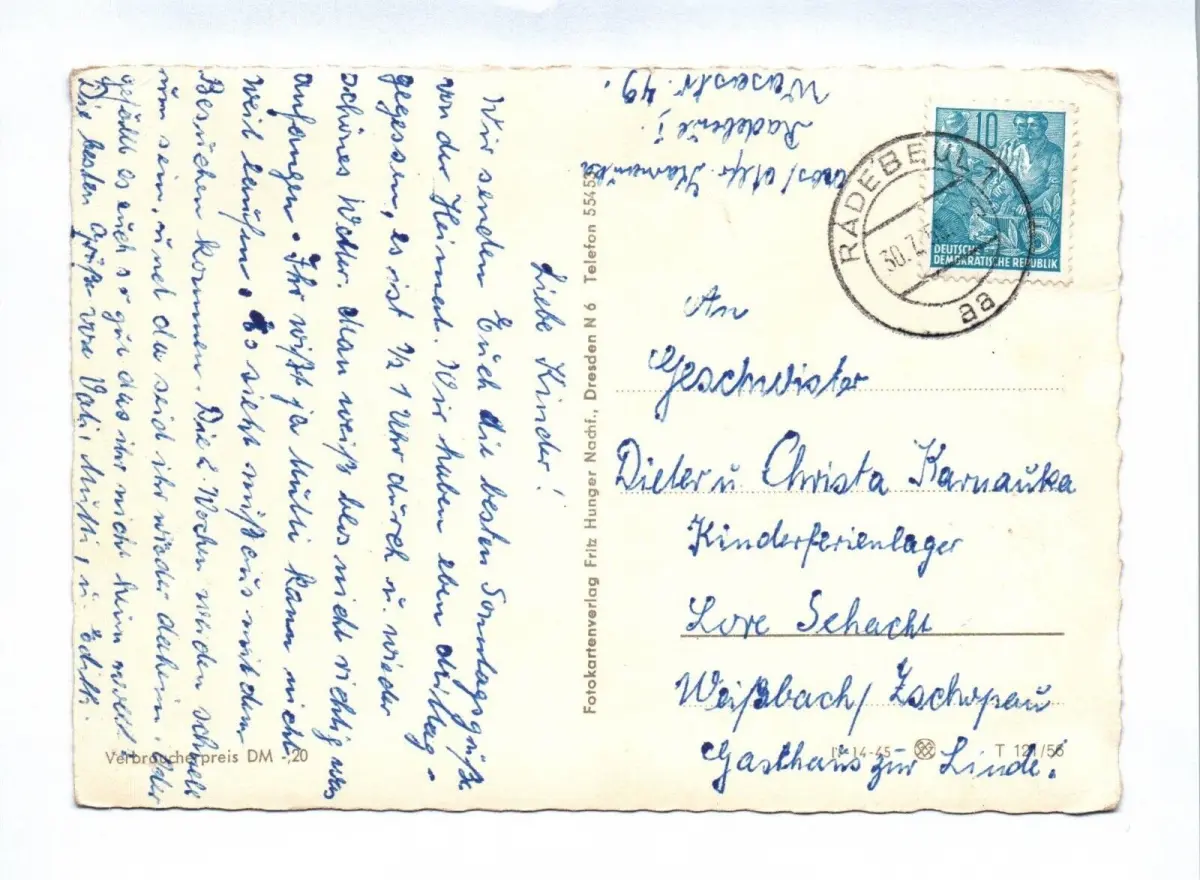 Liebe Kinder!
Wir senden Euch die besten Sonntagsgrüße
von der Heimat. Wir haben eben Mittag
gegessen, es ist ½ 1 Uhr durch u. wieder
schönes Wetter. Man weiß blos nicht richtig was
anfangen. Ihr wißt ja Mutti kann nicht
weit laufen. Es sieht mieß aus mit dem
Besuchen kommen. Die 2. Wochen werden schnell
rum sein, und da seid ihr wieder daheim. Oder
gefällt es euch so gut das ihr nicht heim wollt.
Die besten Grüße von Vati, Mutti, u. Edith.
Verbraucherpreis DM -,20
Fotokartenverlag Fritz Hunger Nachf., Dresden N 6 Telefon 55453
Karnauka
Radebeul 1
Wasastr. 49.
RADEBEUL 1
30.7.
aa
10
5
DEUTSCHE
DEMOKRATISCHE REPUBLIK
An
Geschwister
Dieter u Christa Karnauka
Kinderferienlager
Lore Schacht
Weißbach/Zschopau
Gasthaus zur Linde.
14-45
T 121/56